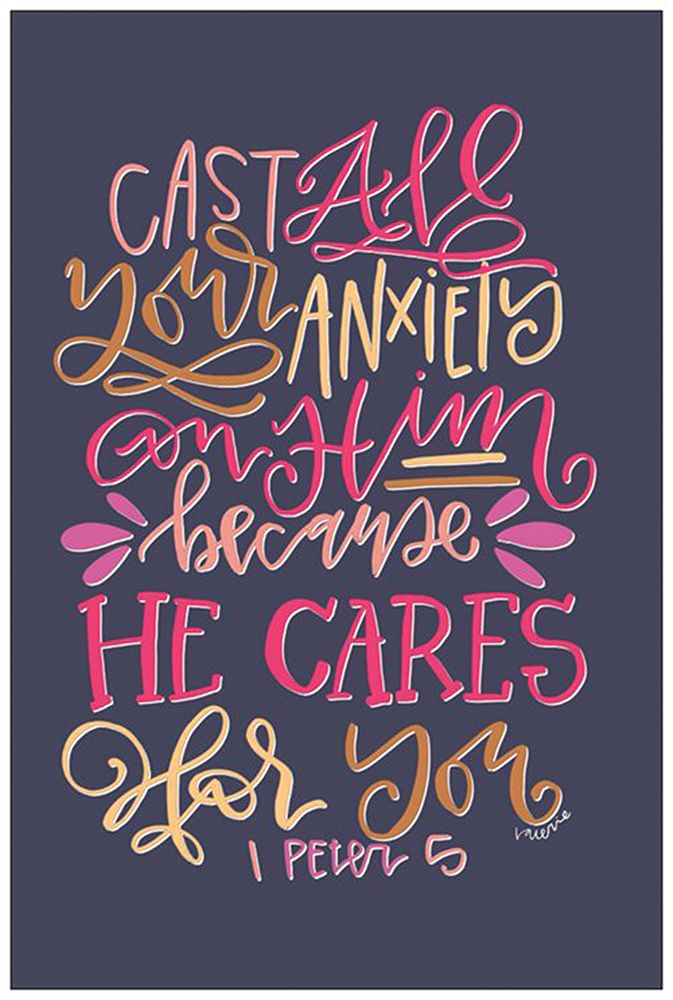 CAST All
your ANXIETY
on Him
because
HE CARES
for You
Valerie
1 Peter 5